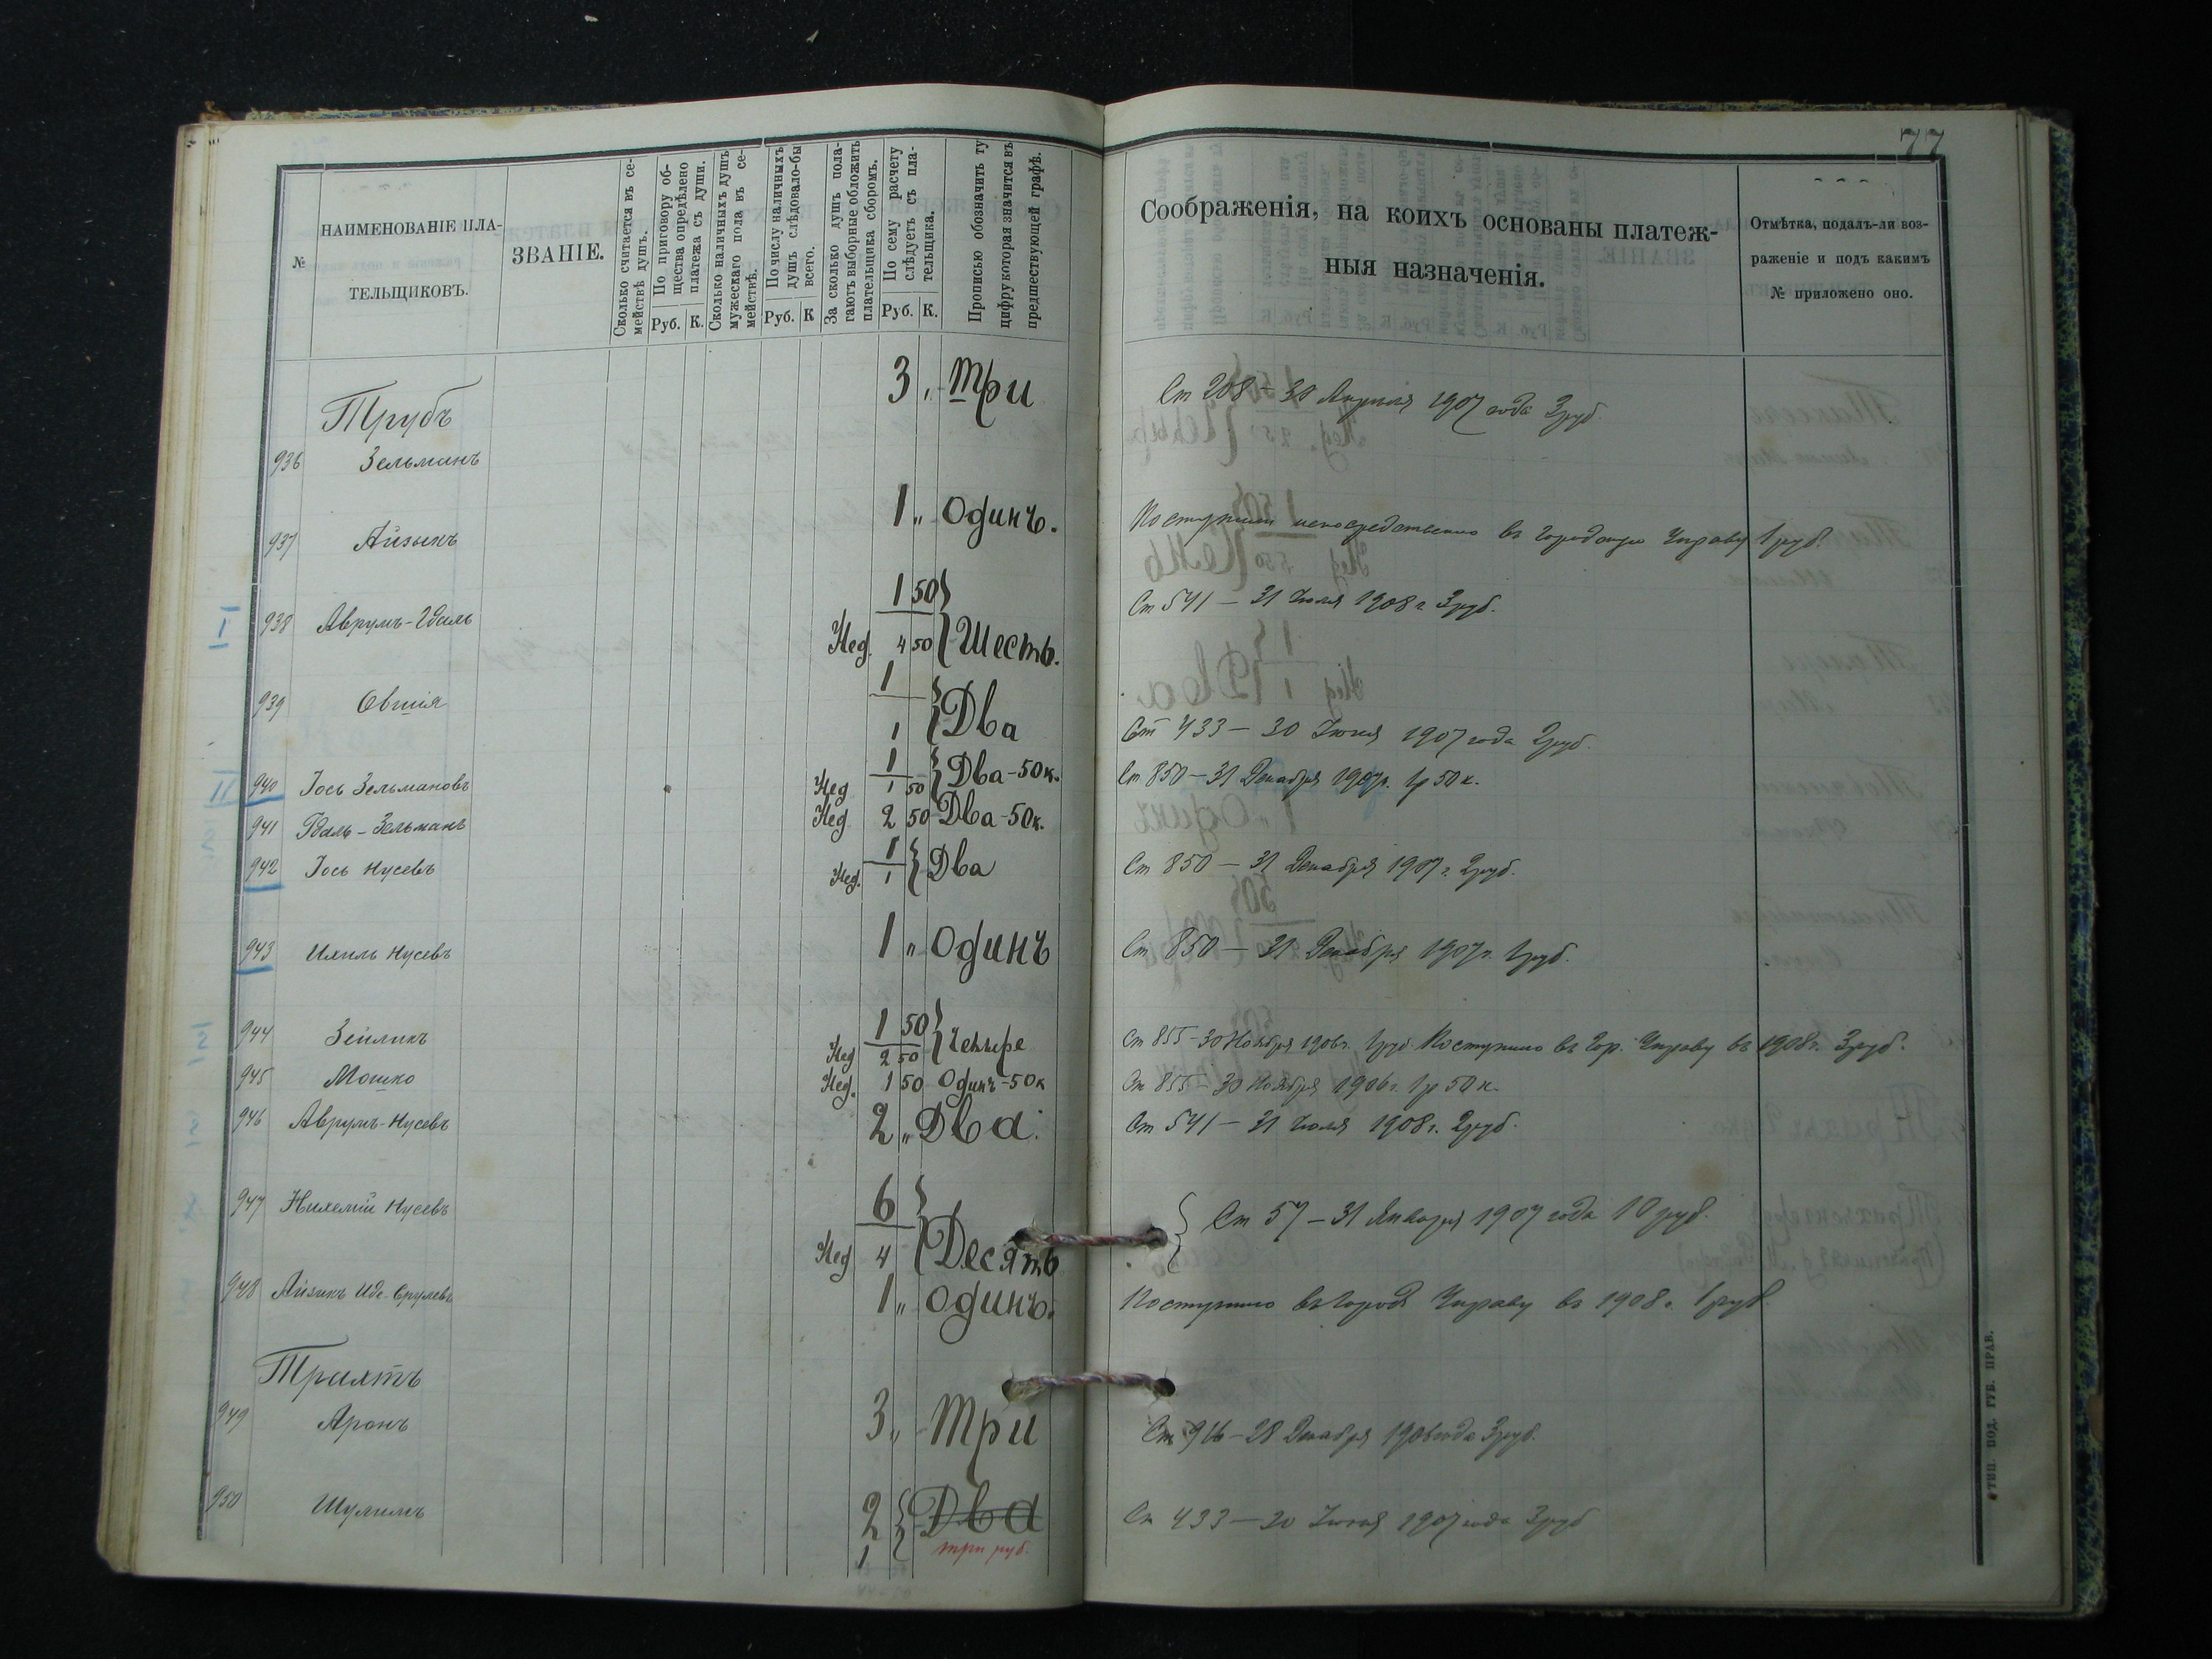 77
№
НАИМЕНОВАНІЕ ПЛА-
ТЕЛЬЩИКОВЪ.
ЗВАНІЕ.
Сколько считается въ се-
мействѣ душъ.
По приговору об-
щества опредѣлено
платежа съ души.
Руб. К.
Сколько наличныхъ душъ
мужескаго пола въ се-
мействѣ.
По числу наличныхъ
душъ слѣдовало-бы
всего.
Руб. К
За сколько душъ пола-
гаютъ выборные обложить
плательщика сборомъ.
По сему расчету
слѣдуетъ съ пла-
тельщика.
Руб. К.
Прописью обозначить ту
цифру которая значится въ
предшествующей графѣ.
Соображенія, на коихъ основаны платеж-
ныя назначенія.
Отмѣтка, подалъ-ли воз-
раженіе и подъ какимъ
№ приложено оно.
Трубъ
936 Зельманъ 3 „ Три Ст 208 – 30 Апрѣля 1907 года 3 руб.
937 Айзыкъ 1 „ Одинъ. Поступили непосредственно въ Городскую Управу 1 руб.
938 Аврумъ-Гдаль 1 50
Нед. 4 50 Шесть. Ст 541 – 31 Июля 1908 г. 3 руб.
939 Овшія 1
1 Два Ст 433 – 30 Іюня 1907 года 2 руб.
940 Іось Зельмановъ 1
Нед 1 50 Два-50к. Ст 850 – 31 Декабря 1907 г. 1р 50 к.
941 Гдаль-Зельманъ Нед 2 50 Два-50к.
942 Іось Нусевъ 1
Нед. 1 Два Ст 850 – 31 Декабря 1907 г. 2 руб.
943 Ихиль Нусевъ 1 „ Одинъ Ст 850 – 31 Декабря 1907 г. 1 руб.
944 Зейликъ 1 50
Нед 2 50 Четыре Ст 855 – 30 Ноября 1906 г. 1 руб. Поступило въ Гор. Управу въ 1908 г. 3 руб.
945 Мошко Нед. 1 50 Одинъ-50к Ст 855 – 30 Ноября 1906 г. 1 р 50 к.
946 Аврумъ-Нусевъ 2 „ Два. Ст 541 – 31 Июля 1908 г. 2 руб.
947 Нихемій Нусевъ 6
Нед 4 Десять Ст 57 – 31 Января 1907 года 10 руб.
948 Айзикъ Иде-Срулевъ 1 „ Одинъ. Поступило въ Город Управу въ 1908 г. 1 руб.
Трихтъ
949 Аронъ 3 „ Три Ст 916 – 28 Декабря 1906 года 3 руб.
950 Шулимъ 2
1 Два Ст 433 – 30 Іюня 1907 года 3 руб
три руб.
ТИП. ПОД. ГУБ. ПРАВ.